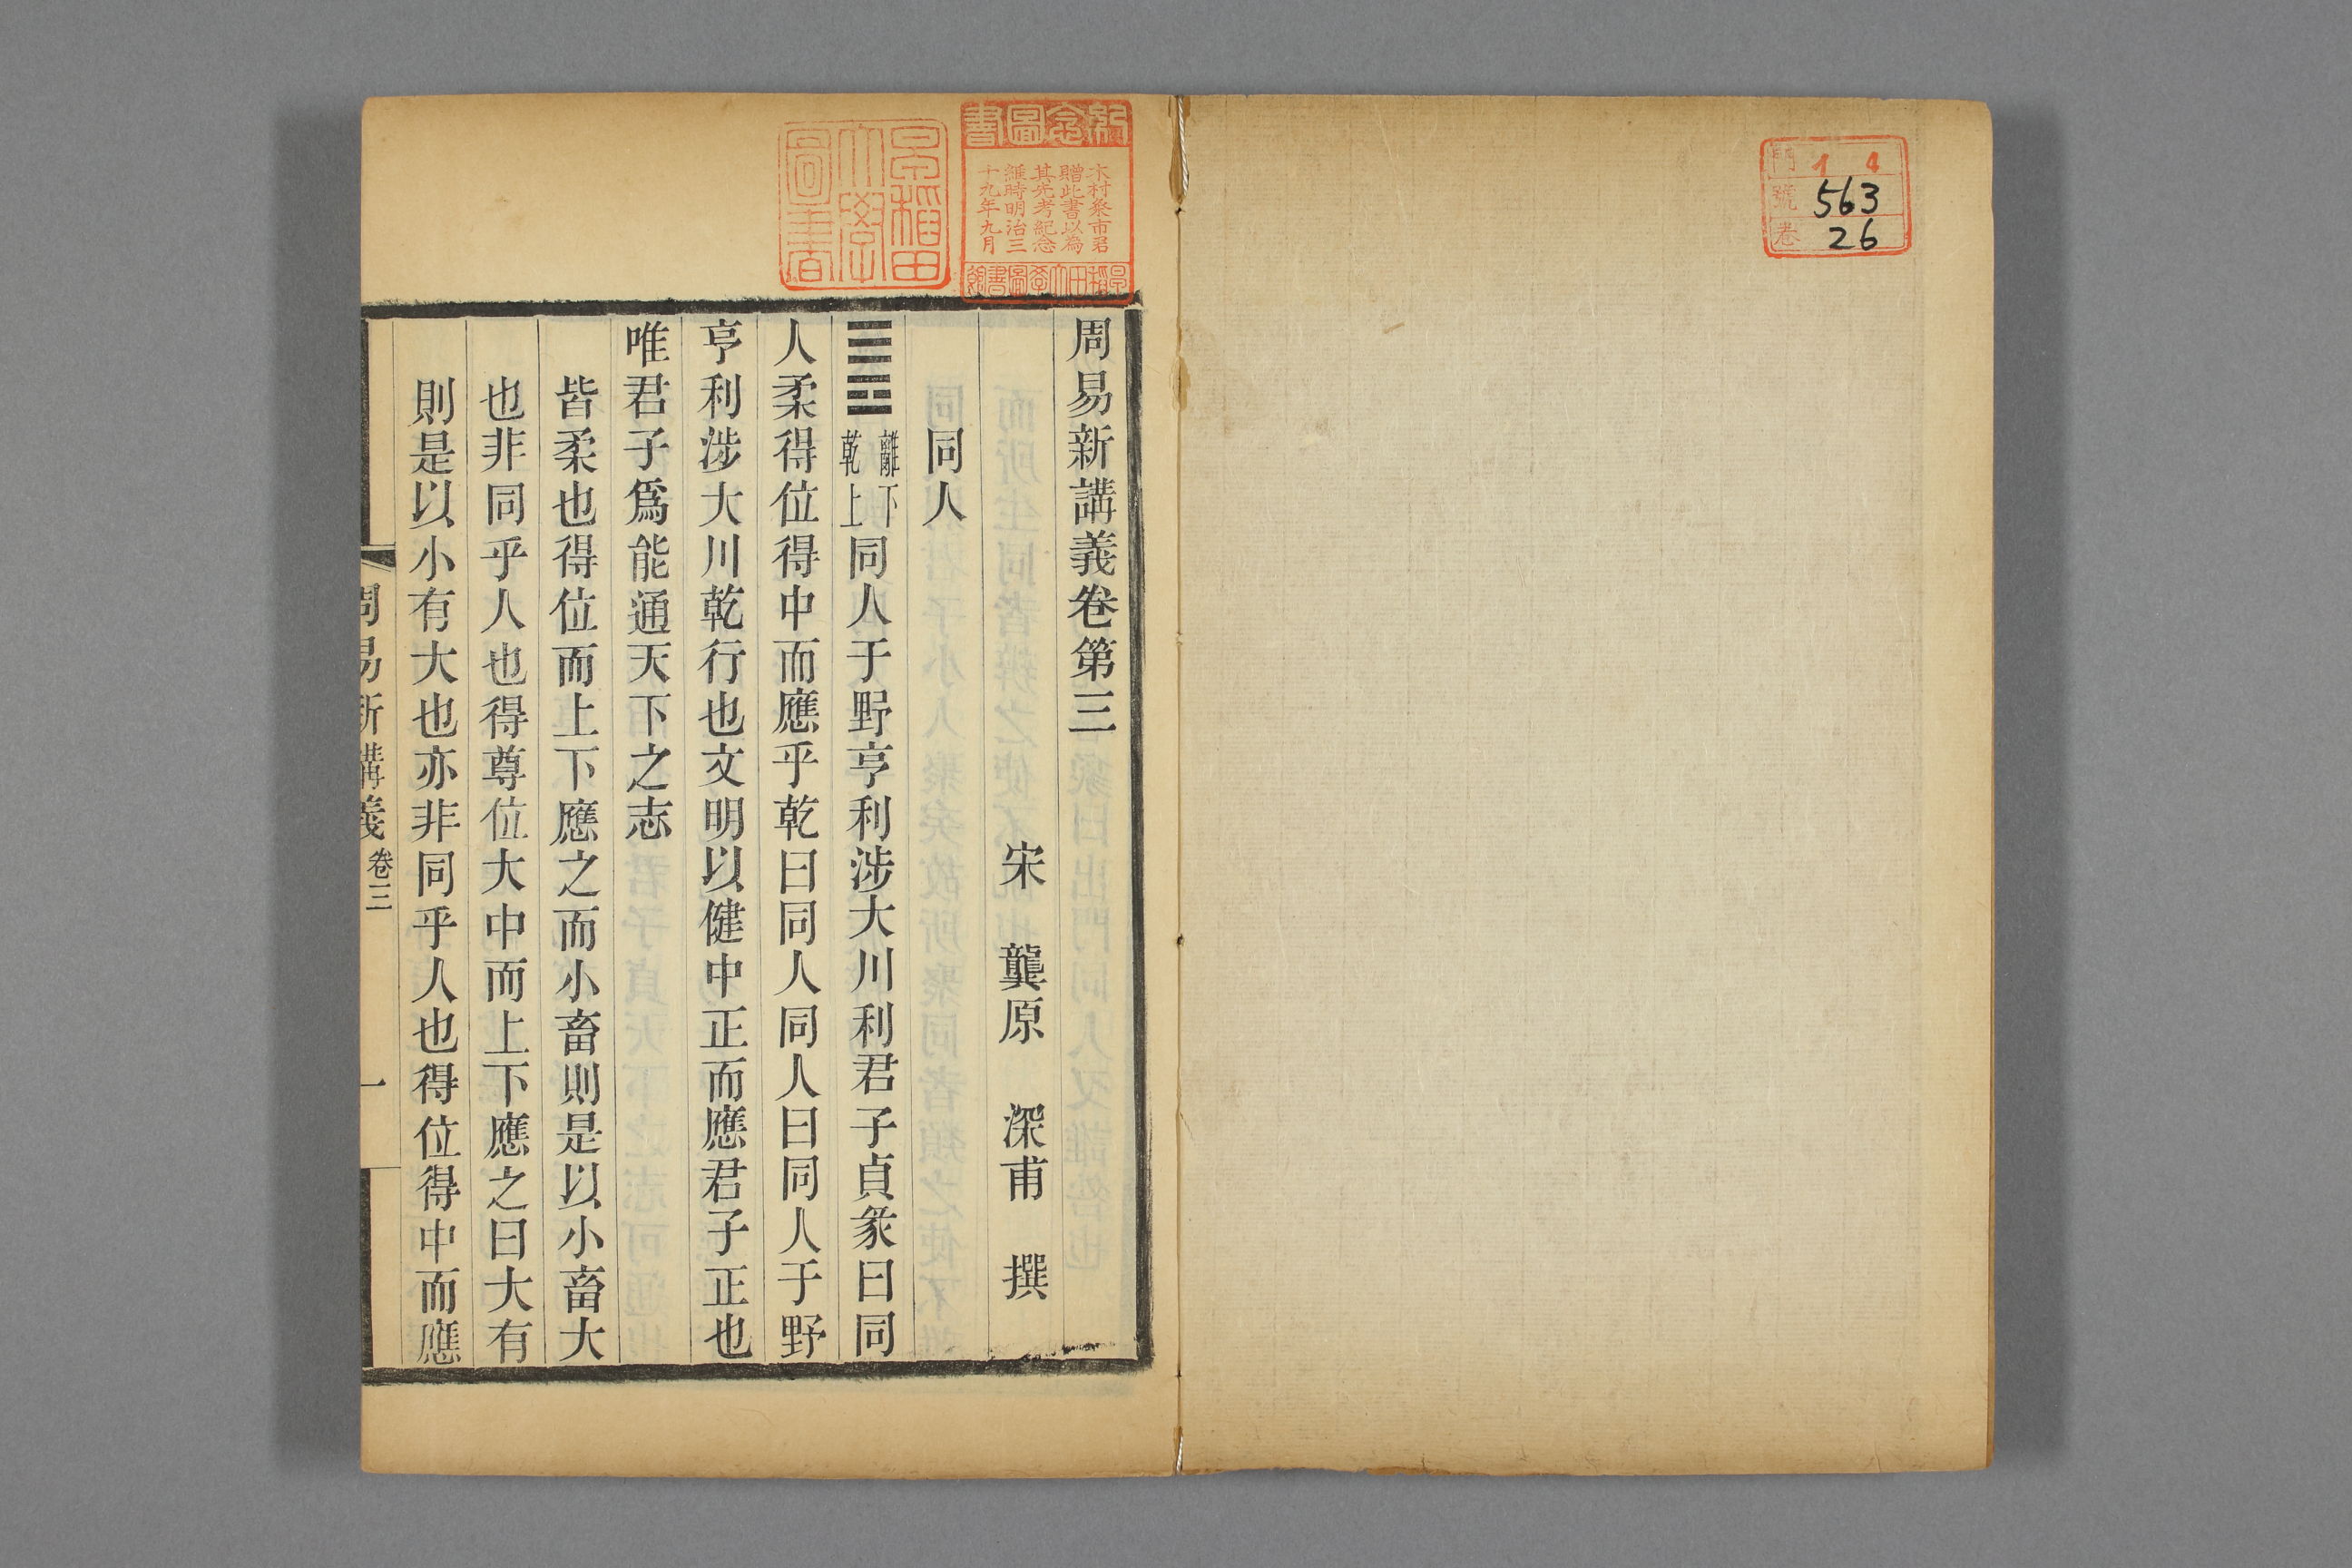 門 14
號 563
卷 26
紀念圖書
木村粂市君
贈此書以為
其先考紀念
維時明治三
十九年九月
早稻田大學圖書館
早稻田
大學
圖書
周易新講義卷第三
宋 龔原 深甫 撰
同人
䷌ 離下
乾上
同人于野亨利涉大川利君子貞彖曰同
人柔得位得中而應乎乾曰同人同人曰同人于野
亨利涉大川乾行也文明以健中正而應君子正也
唯君子爲能通天下之志
皆柔也得位而上下應之而小畜則是以小畜大
也非同乎人也得尊位大中而上下應之曰大有
則是以小有大也亦非同乎人也得位得中而應
周易新講義 卷三 一